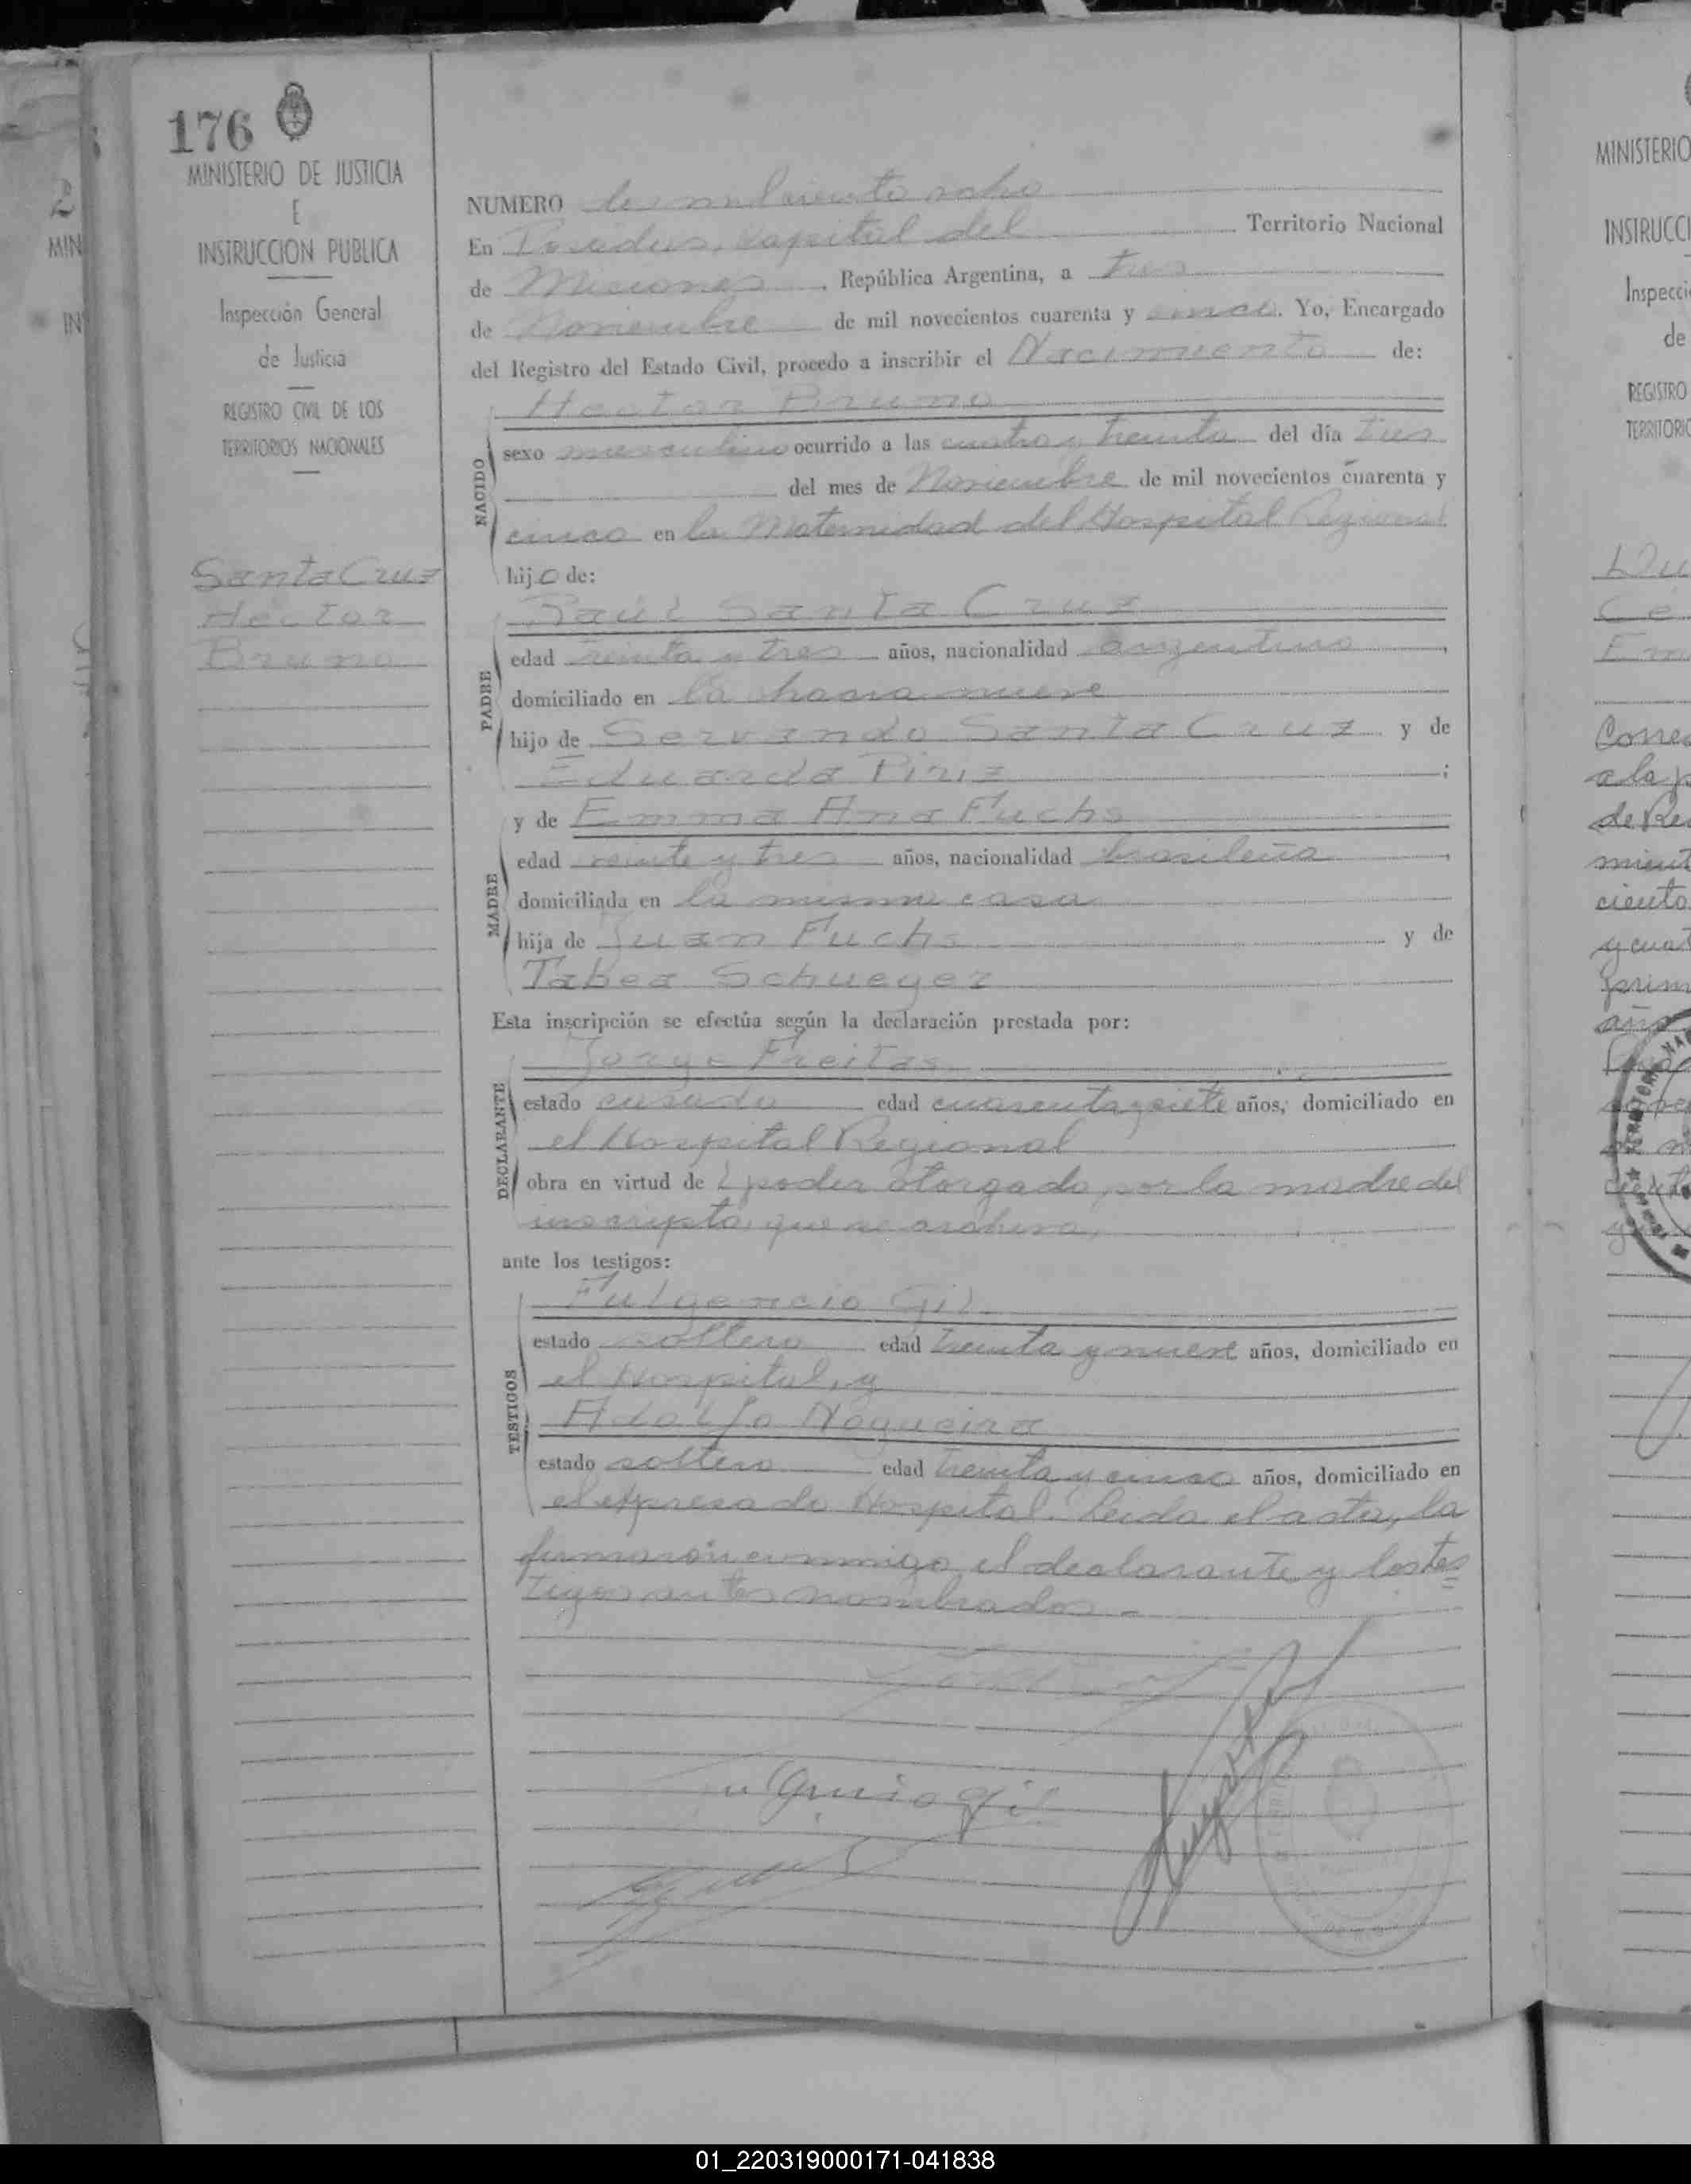 176
MINISTERIO DE JUSTICIA
E
INSTRUCCION PUBLICA
Inspección General
de Justicia
REGISTRO CIVIL DE LOS
TERRITORIOS NACIONALES
Santa Cruz
Héctor
Bruno
NUMERO dos mil ciento ocho
En Posadas, Capital del Territorio Nacional
de Misiones, República Argentina, a tres
de Noviembre de mil novecientos cuarenta y cinco. Yo, Encargado
del Registro del Estado Civil, procedo a inscribir el Nacimiento de:
NACIDO
Hector Bruno
sexo masculino ocurrido a las cuatro y treinta del día tres
del mes de Noviembre de mil novecientos cuarenta y
cinco en la Maternidad del Hospital Regional
hijo de:
PADRE
Raúl Santa Cruz
edad treinta y tres años, nacionalidad argentino,
domiciliado en la chacra nueve
hijo de Servando Santa Cruz y de
Eduarda Piriz;
MADRE
y de Emma Ana Fuchs
edad veinte y tres años, nacionalidad brasileña,
domiciliada en la misma casa
hija de Juan Fuchs y de
Tabea Schueger
Esta inscripción se efectúa según la declaración prestada por:
DECLARANTE
Jorge Freitas
estado casado edad cuarenta y siete años, domiciliado en
el Hospital Regional
obra en virtud de poder otorgado por la madre del
inscripto que se archiva,
ante los testigos:
TESTIGOS
Fulgencio Gil
estado soltero edad treinta y nueve años, domiciliado en
el Hospital, y
Adolfo Nogueira
estado soltero edad treinta y cinco años, domiciliado en
el expresado Hospital. Leida el acta, la
firmaron conmigo el declarante y los tes
tigos antes nombrados.-
Fulgencio Gil
MINISTERIO
INSTRUCCI
Inspecci
de
REGISTRO
TERRITORIO
01_220319000171-041838